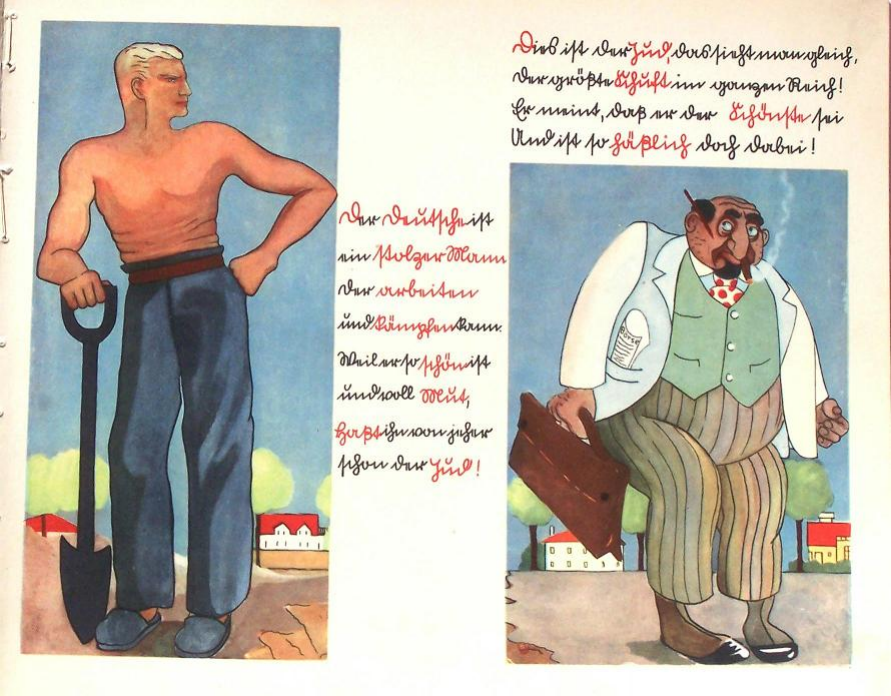 Der Deutsche ist
ein stolzer Mann
Der arbeiten
und kämpfen kann.
Weil er so schön ist
und voll Mut,
Haßt ihn von jeher
schon der Jud!
Dies ist der Jud, das sieht man gleich,
Der größte Schuft im ganzen Reich!
Er meint, daß er der Schönste sei
Und ist so häßlich doch dabei!
Börse